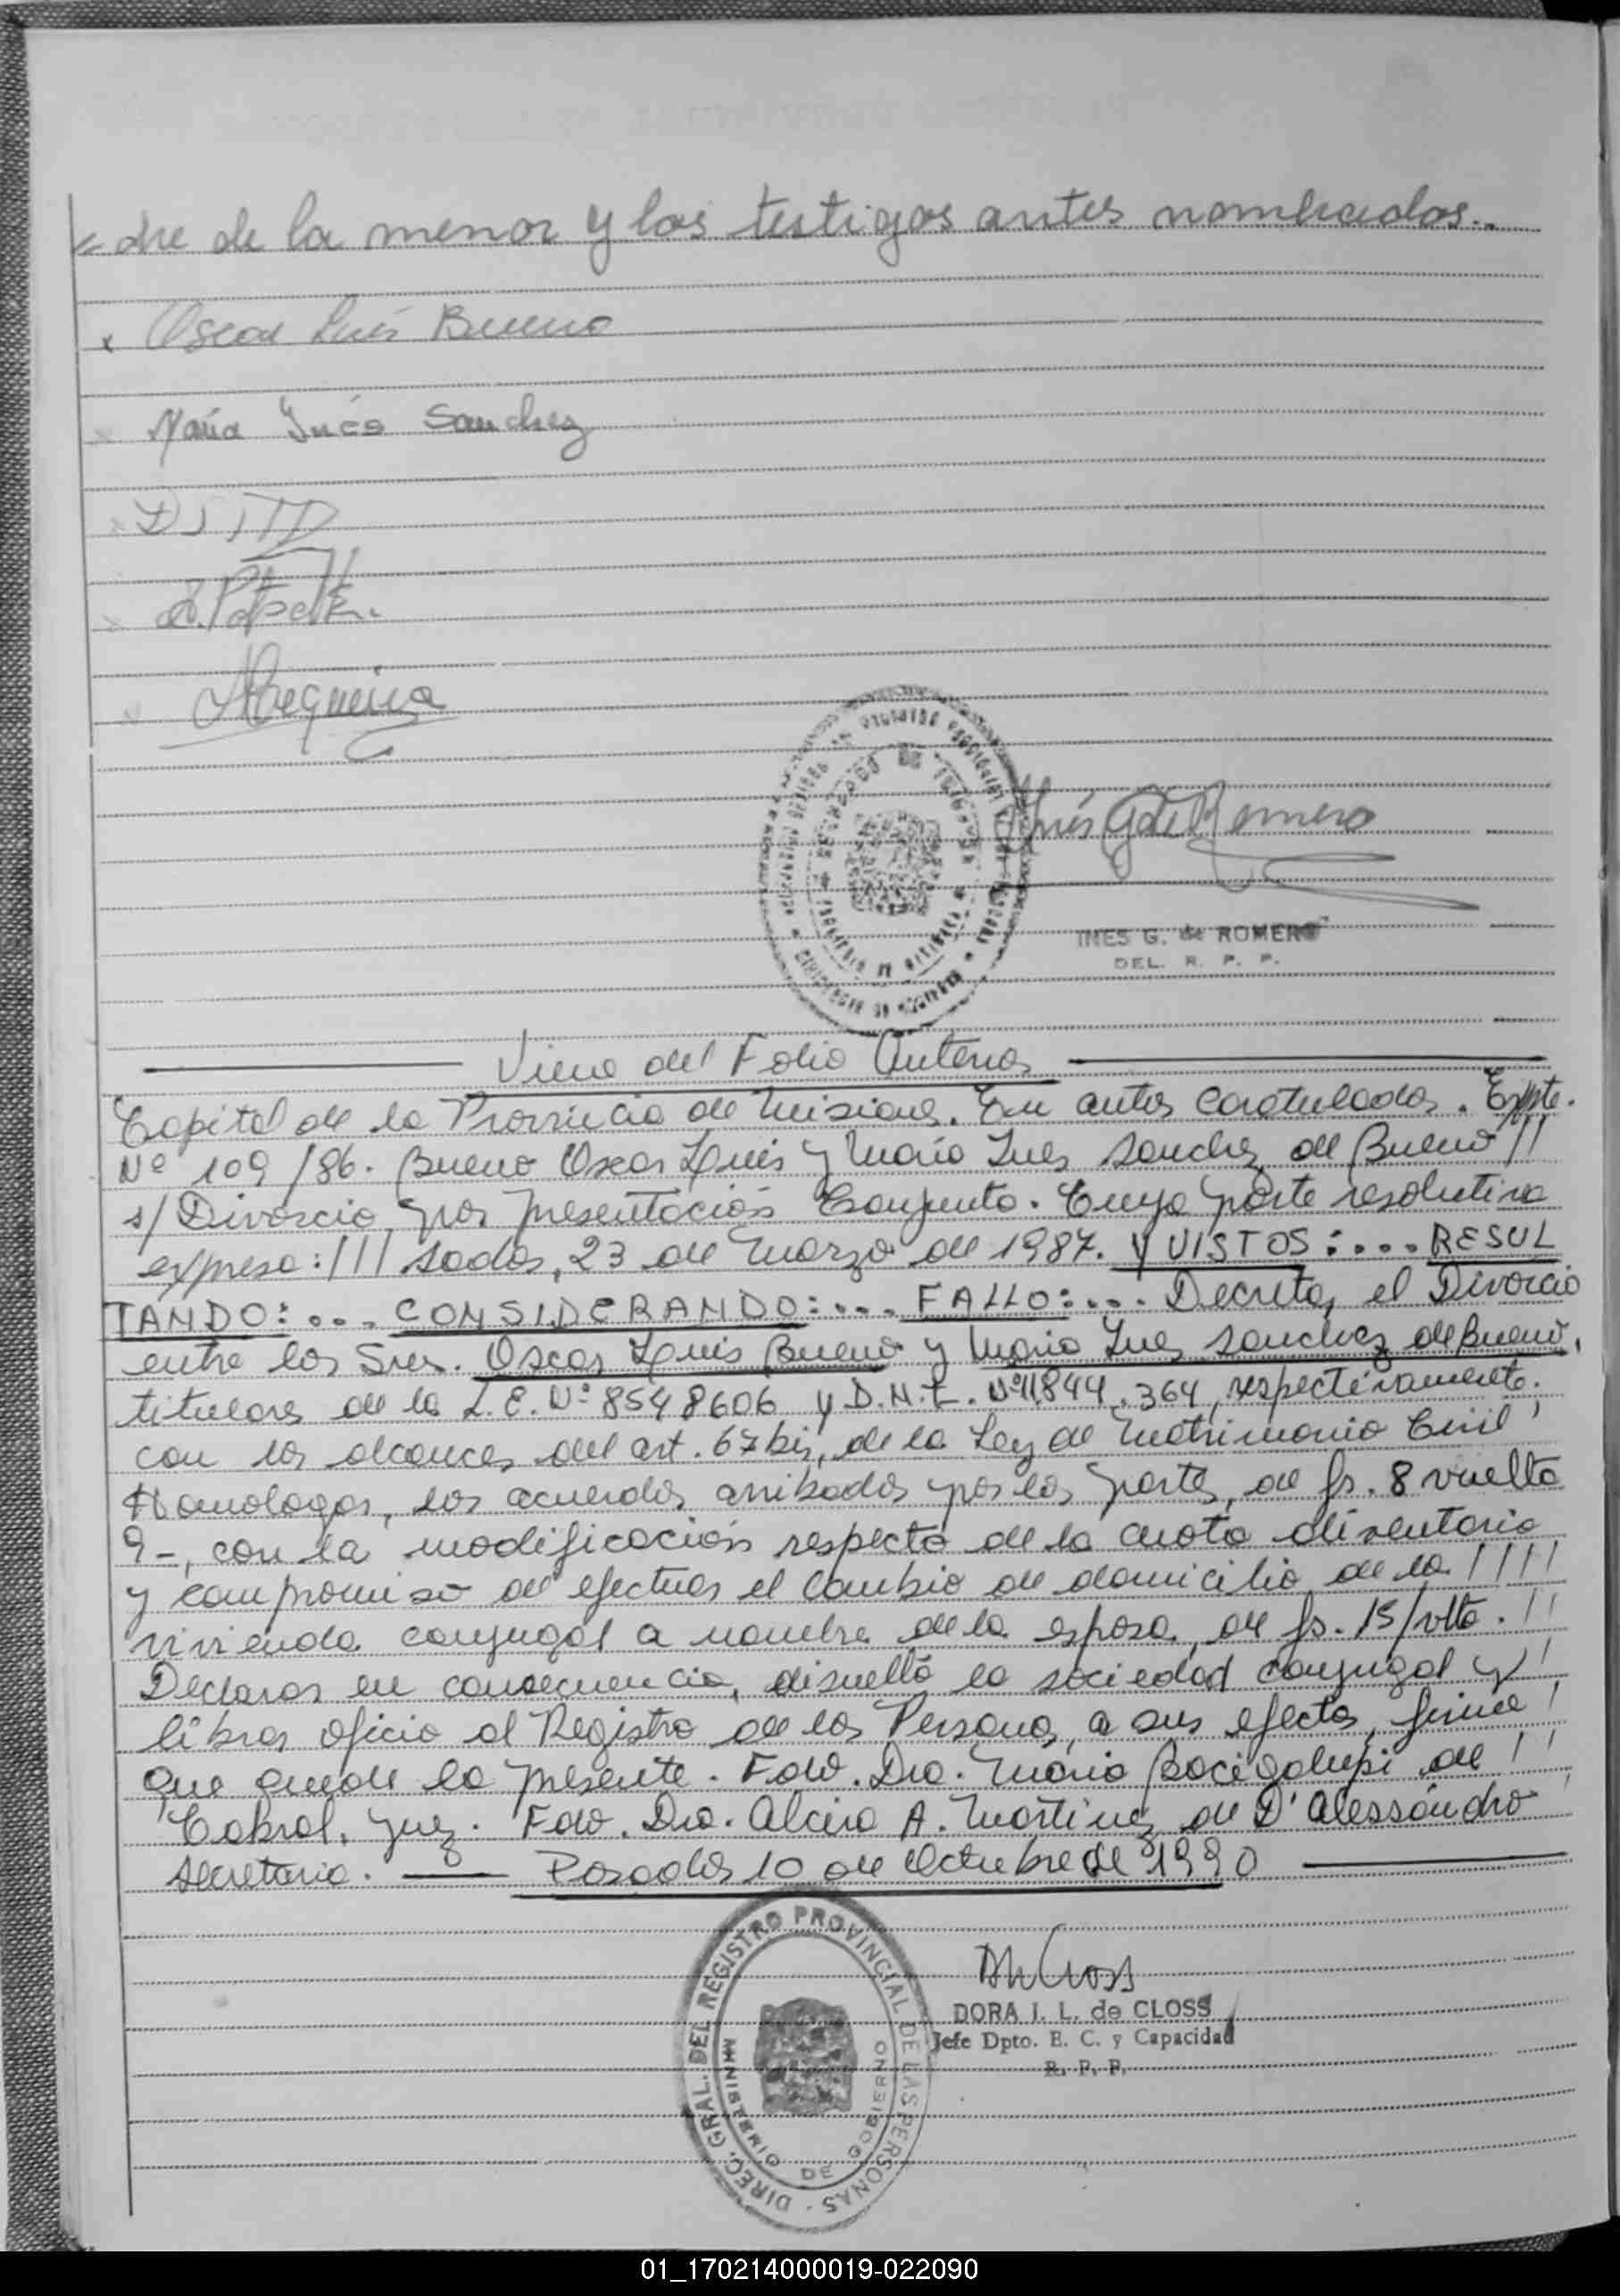 dre de la menor y los testigos antes nombrados..
Oscar Luis Bueno
María Inés Sanchez
Inés G de Romero
INES G. de ROMERO
DEL. R. P. P.
Viene del Folio Anterior
Capital de la Provincia de Misiones. En autos Caratulados. Expte.
Nº 109/86. Bueno Oscar Luis y María Ines Sanchez de Bueno //
s/ Divorcio por presentación Conjunta. Cuya parte resolutiva
expresa: /// sadas, 23 de Marzo de 1987. Y VISTOS:.... RESUL
TANDO:.... CONSIDERANDO:.... FALLO:.... Decretar el Divorcio
entre los Sres. Oscar Luis Bueno y María Ines Sanchez de Bueno,
titulares de la L.E. Nº 8548606 y D.N.I. Nº 11.844.364, respectivamente.
con los alcances del art. 67 bis, de la Ley de Matrimonio Civil
Homologar, los acuerdos arribados por las partes, de fs. 8 vuelta
9-, con la modificación respecto de la cuota alimentaria
y compromiso de efectuar el cambio de domicilio de la ////
vivienda conyugal a nombre de la esposa, de fs. 15/vlta. //
Declarar en consecuencia, disuelta la sociedad conyugal y /
librar oficio al Registro de las Personas, a sus efectos, firme /
que quede la presente. Fdo. Dra. María Bacigalupi de //
Cabral, Juez. Fdo. Dra. Alcira A. Martinez de D'Alessandro
Secretaria. Posadas 10 de Octubre de 1990
DIREC. GRAL. DEL REGISTRO PROVINCIAL DE LAS PERSONAS
MINISTERIO DE GOBIERNO
DORA I. L. de CLOSS
Jefe Dpto. E. C. y Capacidad
R. P. P.
01_170214000019-022090